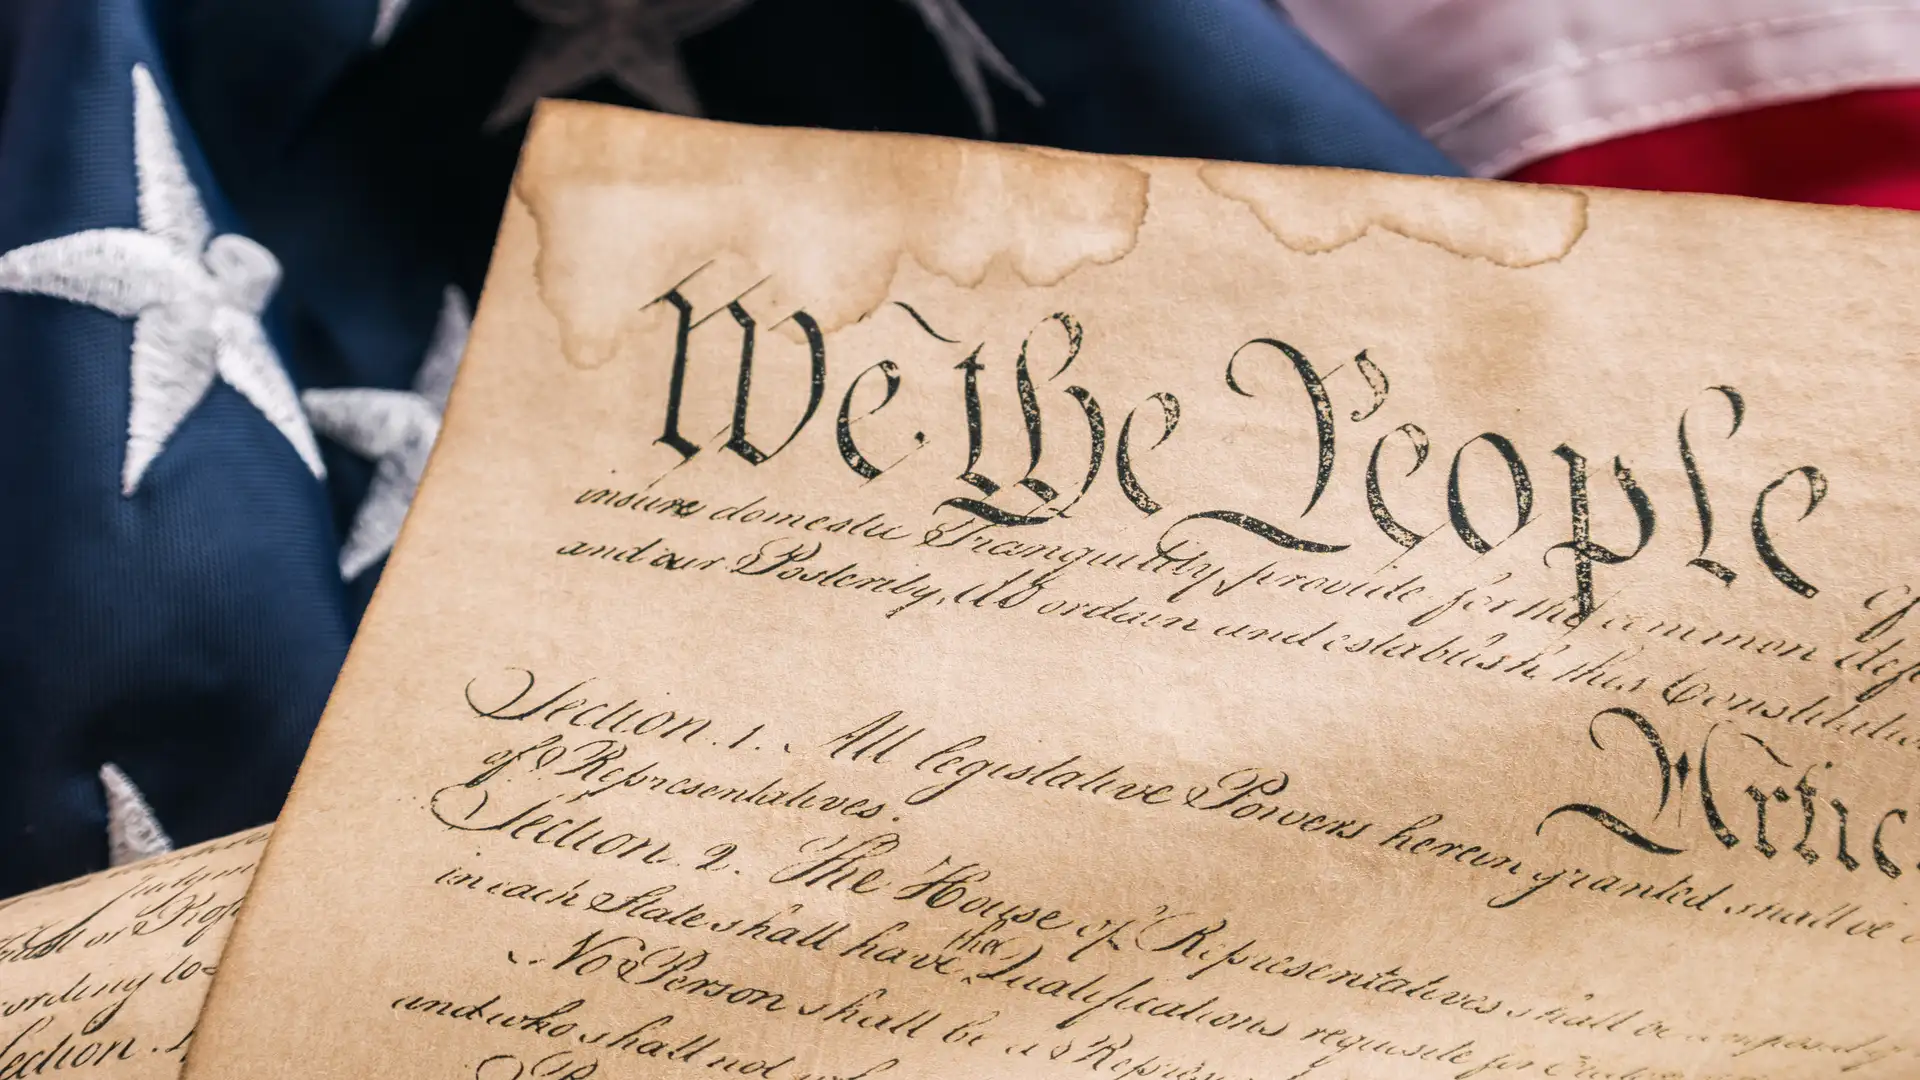 We the People of
insure domestic Tranquility, provide for the common defe
and our Posterity, do ordain and establish this Constitution
Article
Section. 1. All legislative Powers herein granted shall be
of Representatives.
Section. 2. The House of Representatives shall be composed
in each State shall have the Qualifications requisite for
No Person shall be a Repres
and who shall not
ording to
Section. 4